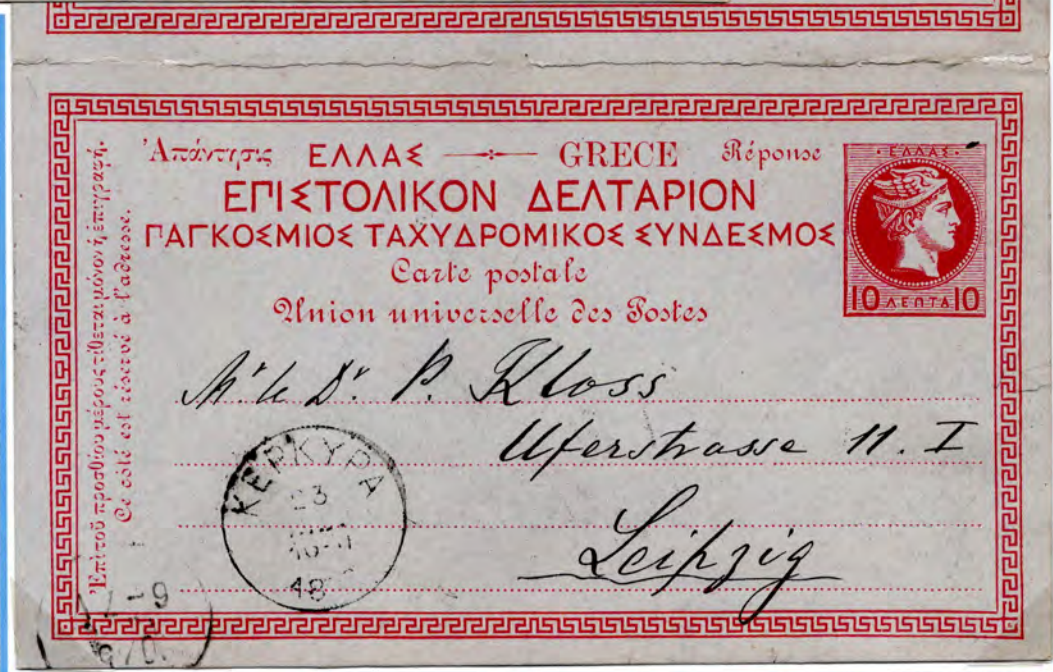 Ἀπάντησις ΕΛΛΑΣ GRECE Réponse
ΕΠΙΣΤΟΛΙΚΟΝ ΔΕΛΤΑΡΙΟΝ
ΠΑΓΚΟΣΜΙΟΣ ΤΑΧΥΔΡΟΜΙΚΟΣ ΣΥΝΔΕΣΜΟΣ
Carte postale
Union universelle des Postes
·ΕΛΛΑΣ·
10 ΛΕΠΤΑ 10
Ἐπὶ τοῦ προσθίου μέρους τίθεται μόνον ἡ ἐπιγραφή.
Ce coté est réservé à l'adresse.
Mr le Dr. P. Kloss
Uferstrasse 11. I
Leipzig
ΚΕΡΚΥΡΑ
23
48
-9